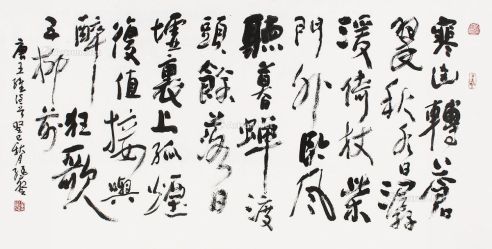 寒山轉蒼
翠秋水日潺
湲倚杖柴
門外臨風
聽暮蟬渡
頭餘落日
墟裏上孤煙
復值接輿
醉狂歌
五柳前
唐王維詩首癸巳秋月